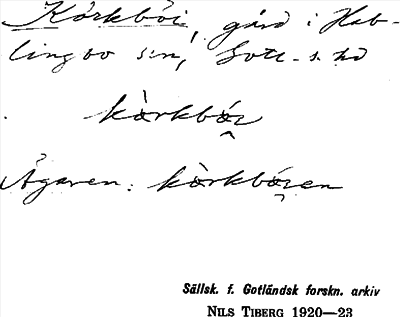 Körkböi, gård i Hab-
lingbo s:n, Gotl. s. hd
kòrkbóı̯
Ägaren: kòrkbóı̯en
Sällsk. f. Gotländsk forskn. arkiv
NILS TIBERG 1920—23